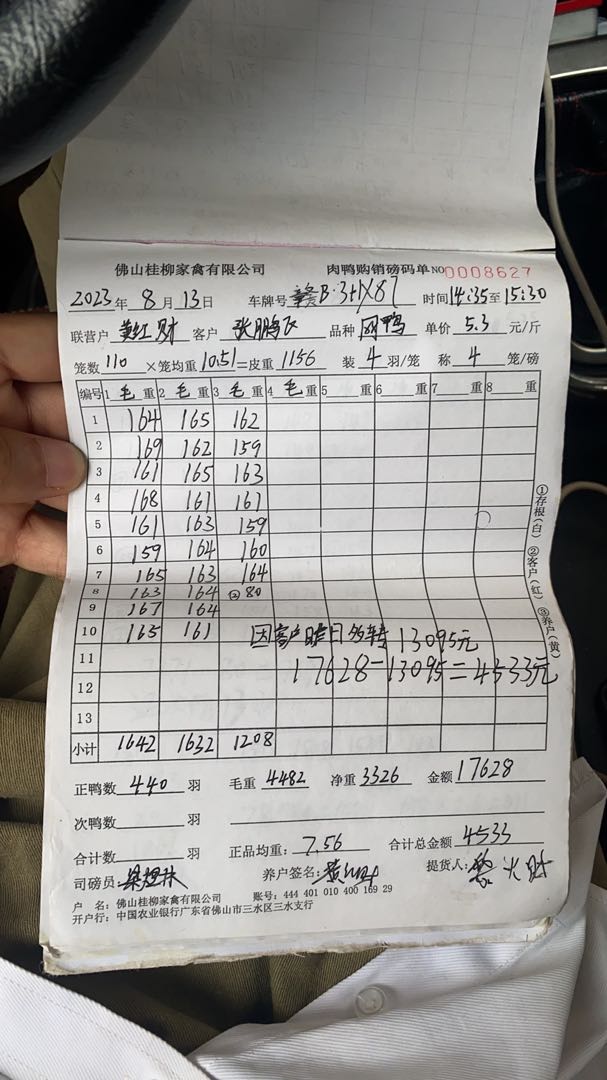 佛山桂柳家禽有限公司 肉鸭购销磅码单 NO 0008627
2023年 8月 13日 车牌号 赣B·3 87 时间 14:35至 15:30
联营户 黄红财 客户 张鹏飞 品种 网鸭 单价 5.3 元/斤
笼数 110 ×笼均重 10.51 =皮重 1156 装 4 羽/笼 称 4 笼/磅
编号 1 毛重 2 毛重 3 毛重 4 毛重 5 重 6 重 7 重 8 重
1 164 165 162
2 169 162 159
3 161 165 163
4 168 161 161
5 161 163 159
6 159 164 160
7 165 163 164
8 163 164 ② 80
9 167 164
10 165 161 因客户昨日多转 13095元
11 17628-13095=4533元
12
13
小计 1642 1632 1208
①存根(白) ②客户(红) ③养户(黄)
正鸭数 440 羽 毛重 4482 净重 3326 金额 17628
次鸭数 羽
合计数 羽 正品均重: 7.56 合计总金额 4533
司磅员 养户签名: 提货人:
户 名: 佛山桂柳家禽有限公司 账号: 444 401 010 400 169 29
开户行: 中国农业银行广东省佛山市三水区三水支行